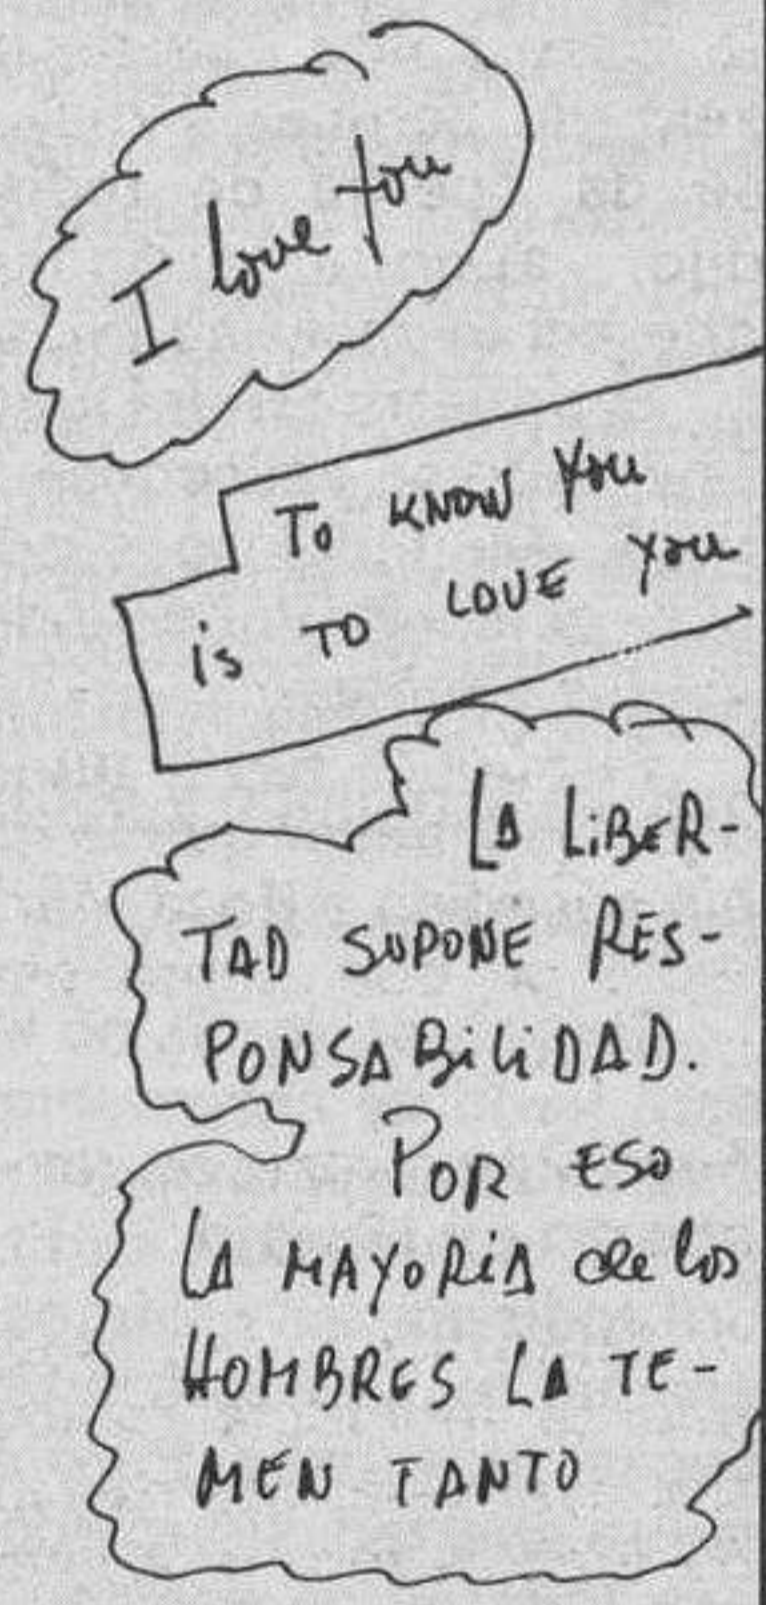 I love you
To KNOW You
is TO LOVE you
LA LiBER-
TAD SUPONE RES-
PONSABiLiDAD.
POR ESO
LA MAYORiA de los
HOMBRES LA TE-
MEN TANTO